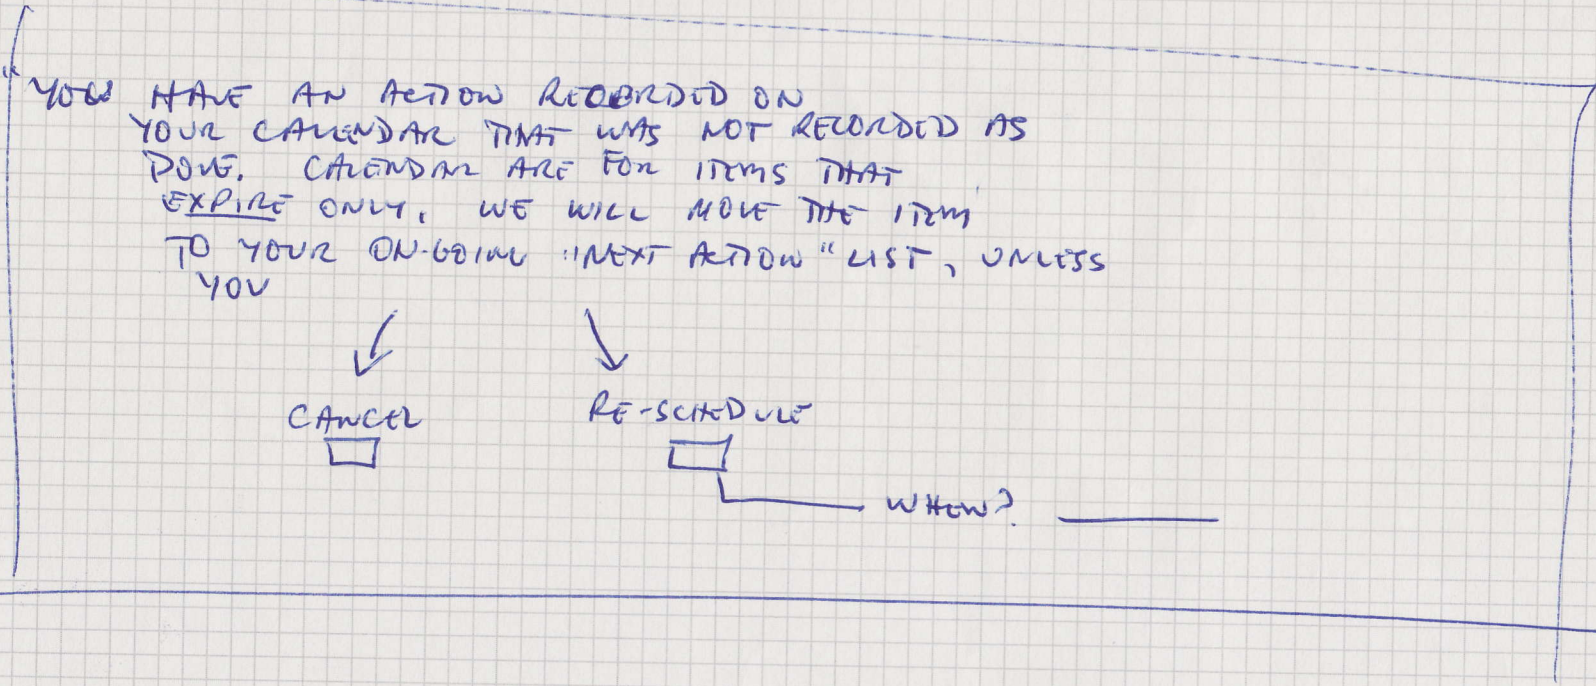 "YOU HAVE AN ACTION RECORDED ON
YOUR CALENDAR THAT WAS NOT RECORDED AS
DONE. CALENDAR ARE FOR ITEMS THAT
EXPIRE ONLY. WE WILL MOVE THE ITEM
TO YOUR ON-GOING "NEXT ACTION" LIST, UNLESS
YOU
CANCEL RE-SCHEDULE
WHEN?